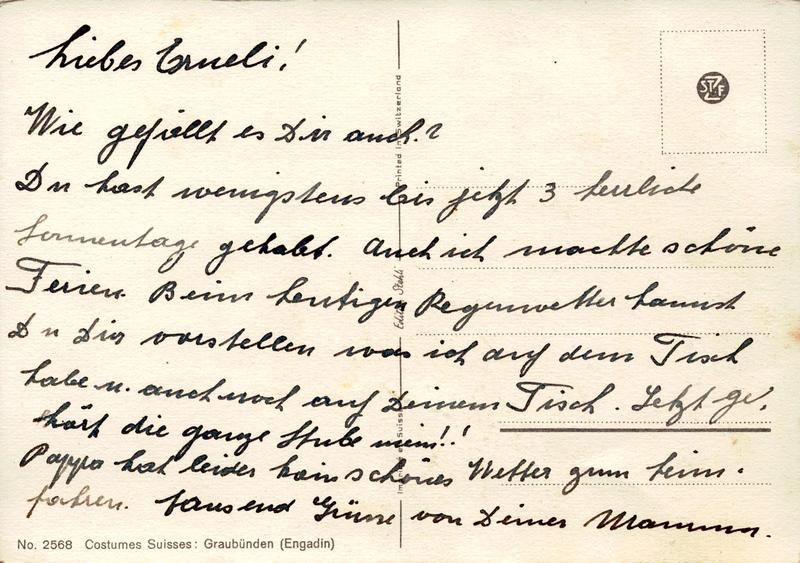 Liebes Erneli!
Wie gefällt es Dir auch?
Du hast wenigstens bis jetzt 3 herrliche
Sonnentage gehabt. Auch ich machte schöne
Ferien. Beim heutigen Regenwetter kannst
Du Dir vorstellen was ich auf dem Tisch
habe u. auch noch auf Deinem Tisch. Jetzt ge-
hört die ganze Stube mein!!
Pappa hat leider kein schönes Wetter zum heim-
fahren. Tausend Grüsse von Deiner Mamma.
Printed in Switzerland
Edition Stehli
Imprimé en Suisse
STZF
No. 2568 Costumes Suisses: Graubünden (Engadin)